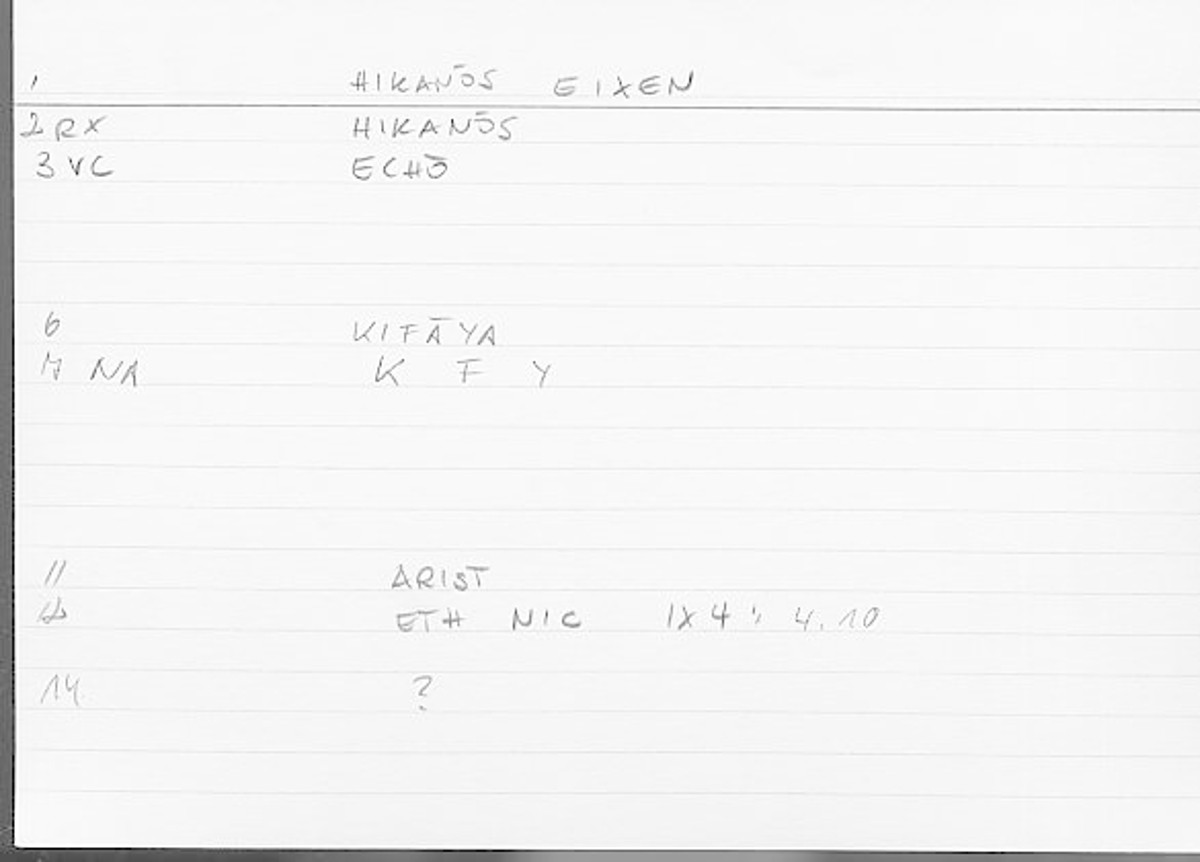 1 HIKANŌS EIXEN
2 RX HIKANŌS
3 VC ECHŌ
6 KIFĀYA
7 NA K F Y
11 ARIST
12 ETH NIC IX 4; 4.10
14 ?